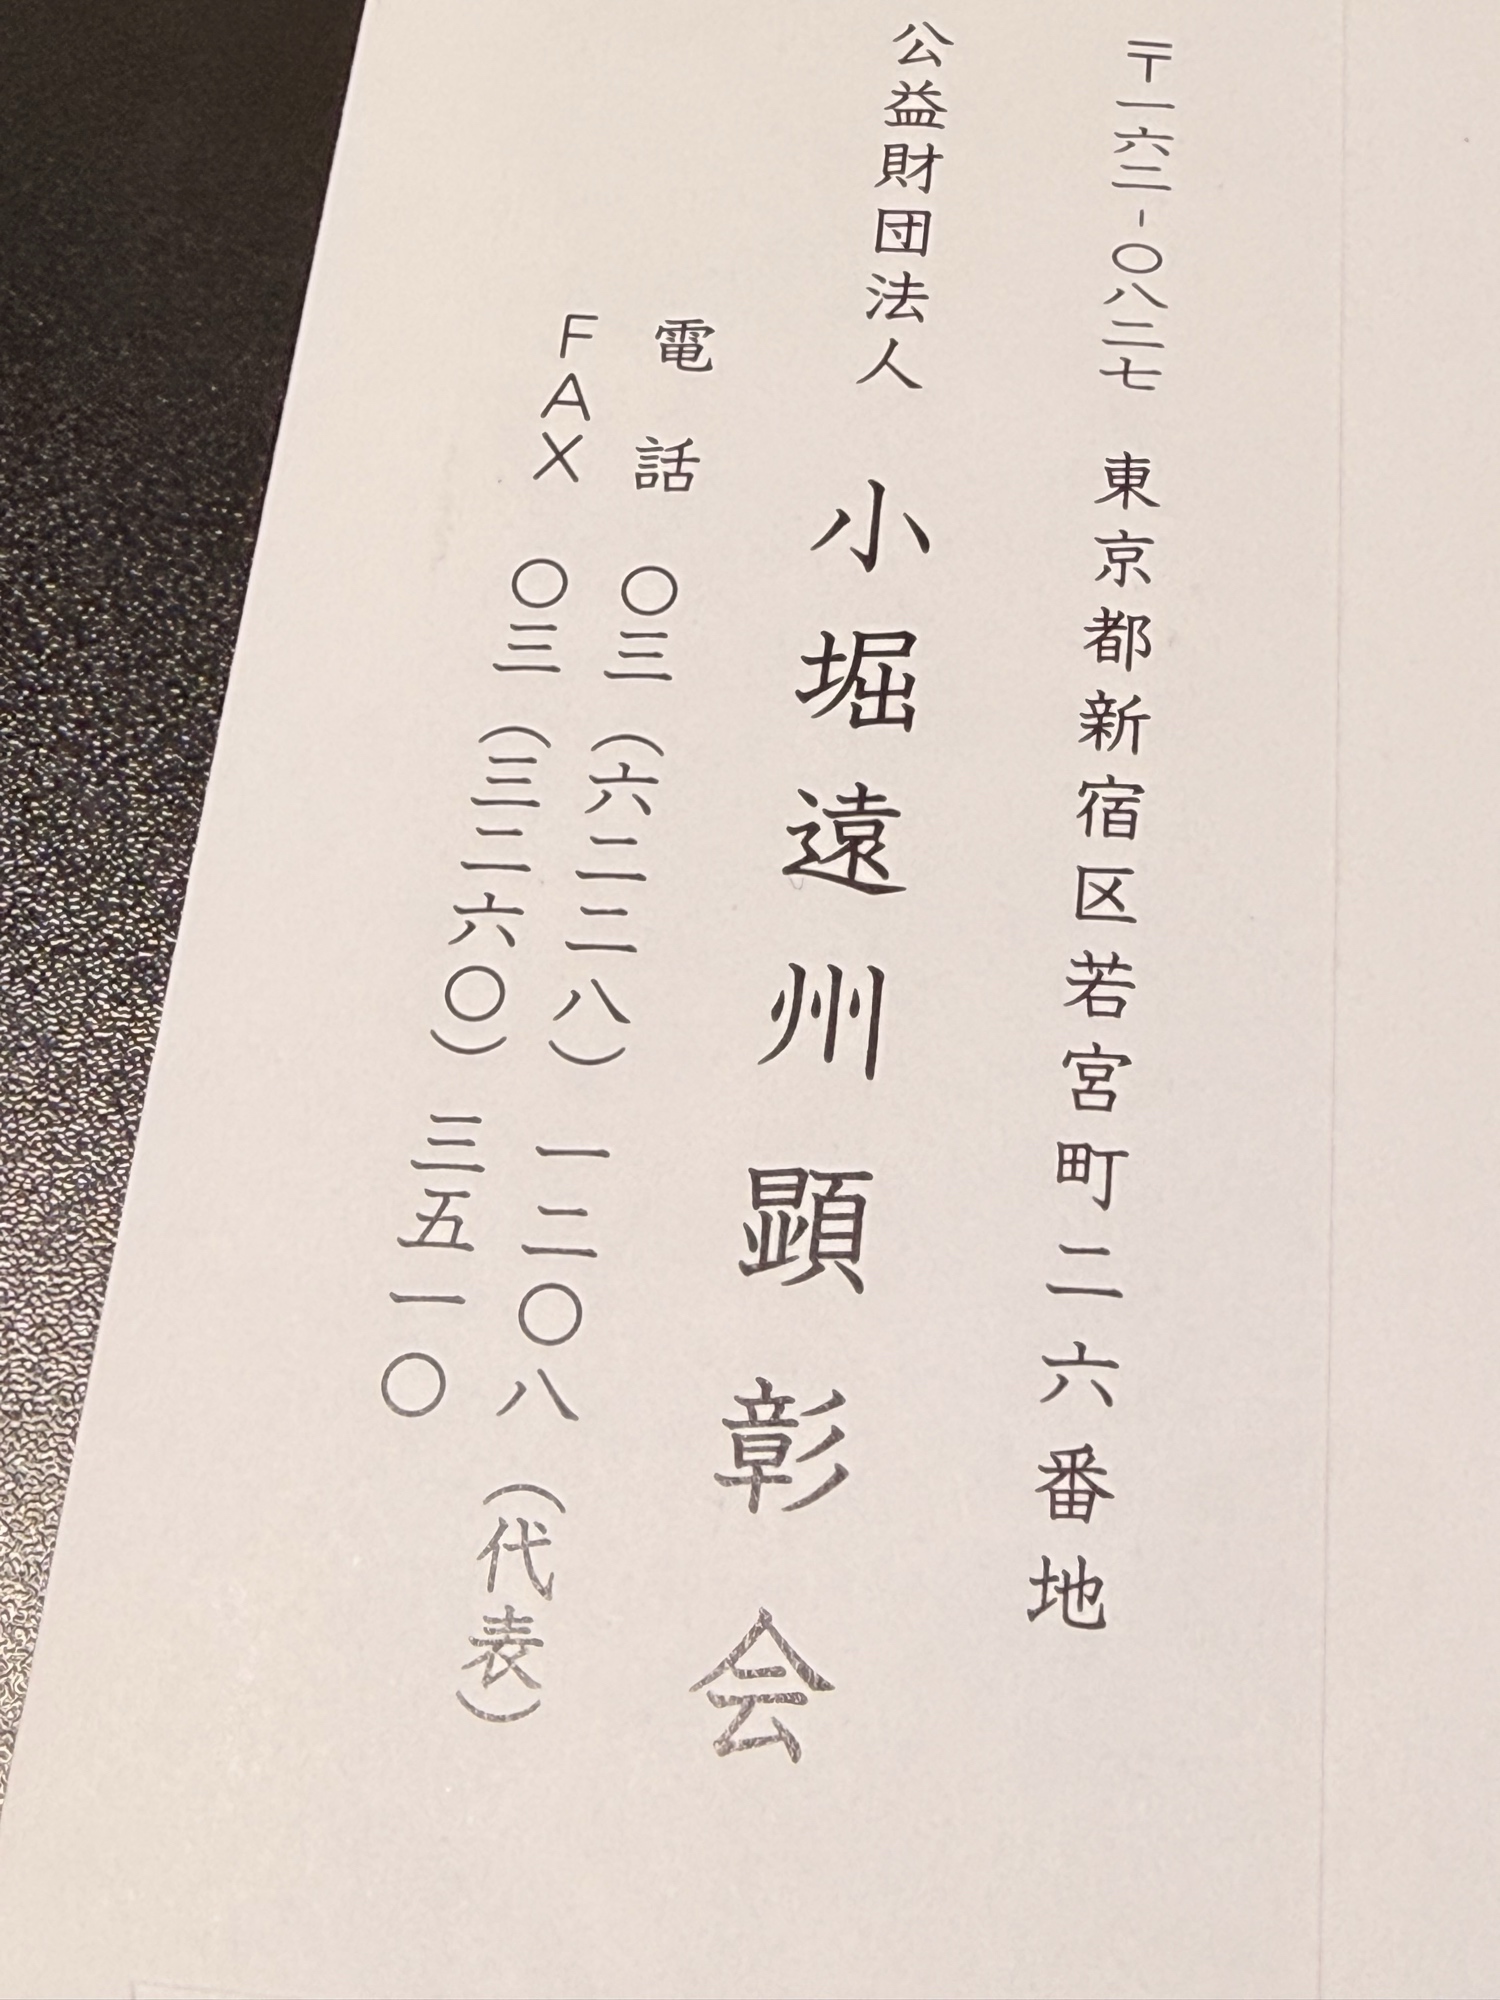 〒一六二-〇八二七 東京都新宿区若宮町二六番地
公益財団法人 小堀遠州顕彰会
電話 〇三（六二二八）一二〇八（代表）
FAX 〇三（三二六〇）三五一〇